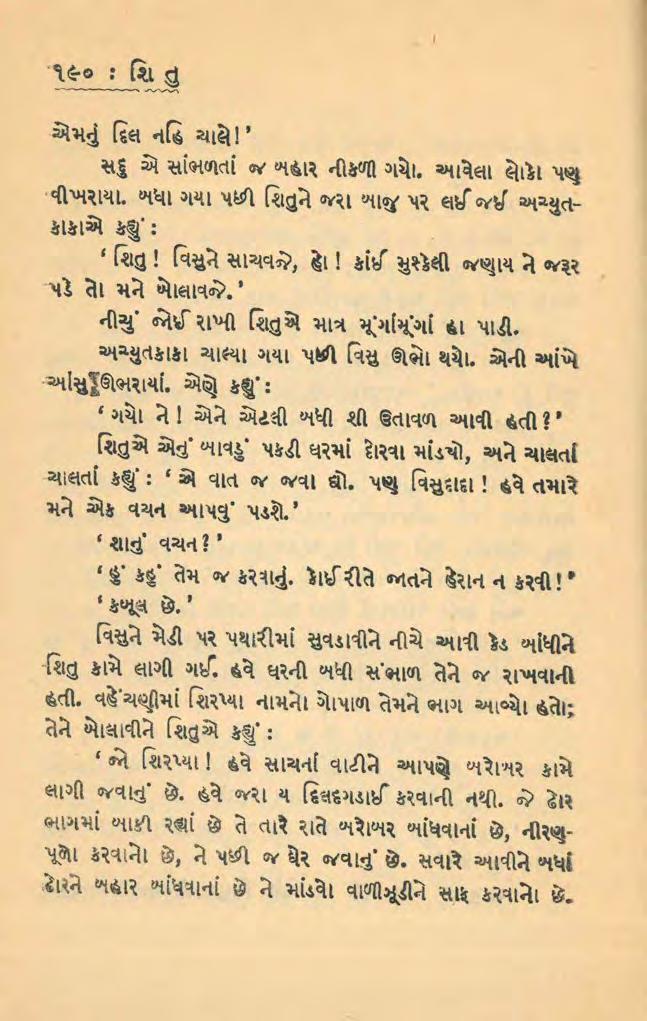 ૧૯૦ : શિ તુ
એમનું દિલ નહિ ચાલે!'
સદુ એ સાંભળતાં જ બહાર નીકળી ગયો. આવેલા લોકો પણ
વીખરાયા. બધા ગયા પછી શિતુને જરા બાજુ પર લઈ જઈ અચ્યુત-
કાકાએ કહ્યું :
'શિતુ! વિસુને સાચવજે, હો! કાંઈ મુશ્કેલી જણાય ને જરૂર
પડે તો મને બોલાવજે.'
નીચું જોઈ રાખી શિતુએ માત્ર મૂંગાંમૂંગાં હા પાડી.
અચ્યુતકાકા ચાલ્યા ગયા પછી વિસુ ઊભો થયો. એની આંખે
આંસુ ઊભરાયાં. એણે કહ્યું :
'ગયો ને! એને એટલી બધી શી ઉતાવળ આવી હતી?'
શિતુએ એનું બાવડું પકડી ઘરમાં દોરવા માંડયો, અને ચાલતાં
ચાલતાં કહ્યું : 'એ વાત જ જવા દ્યો. પણ વિસુદાદા! હવે તમારે
મને એક વચન આપવું પડશે.'
'શાનું વચન?'
'હું કહું તેમ જ કરવાનું. કોઈ રીતે જાતને હેરાન ન કરવી!'
'કબૂલ છે.'
વિસુને મેડી પર પથારીમાં સુવડાવીને નીચે આવી કેડ બાંધીને
શિતુ કામે લાગી ગઈ. હવે ઘરની બધી સંભાળ તેને જ રાખવાની
હતી. વહેંચણીમાં શિરપ્યા નામનો ગોપાળ તેમને ભાગ આવ્યો હતો;
તેને બોલાવીને શિતુએ કહ્યું :
'જો શિરપ્યા! હવે સાચનાં વાટીને આપણે બરોબર કામે
લાગી જવાનું છે. હવે જરા ય દિલદગડાઈ કરવાની નથી. જે ઢોર
ભાગમાં બાકી રહ્યાં છે તે તારે રાતે બરોબર બાંધવાનાં છે, નીરણ-
પૂળો કરવાનો છે, ને પછી જ ઘેર જવાનું છે. સવારે આવીને બધાં
ઢોરને બહાર બાંધવાનાં છે ને માંડવો વાળીઝૂડીને સાફ કરવાનો છે.